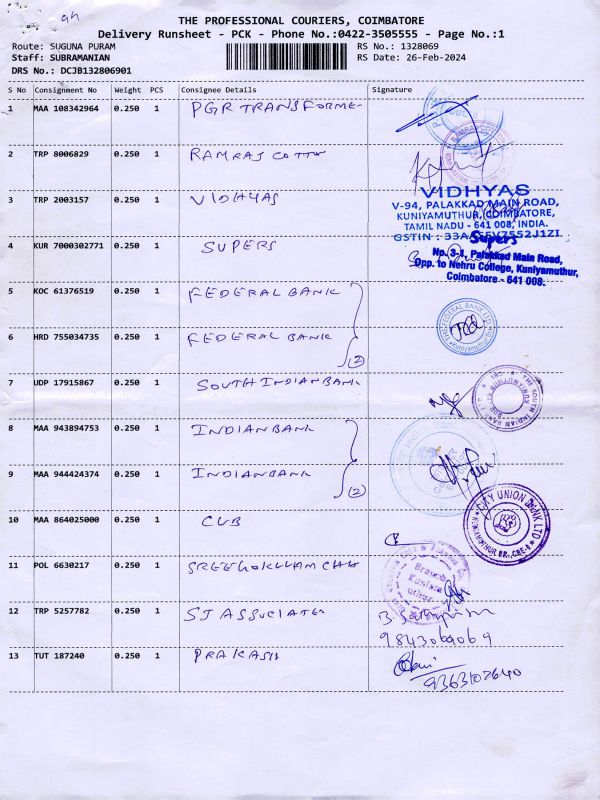 THE PROFESSIONAL COURIERS, COIMBATORE
Delivery Runsheet - PCK - Phone No.:0422-3505555 - Page No.:1
Route: SUGUNA PURAM RS No.: 1328069
Staff: SUBRAMANIAN RS Date: 26-Feb-2024
DRS No.: DCJB132806901
S No Consignment No Weight PCS Consignee Details Signature
1 MAA 108342964 0.250 1 PGR TRANSFORME-
2 TRP 8006829 0.250 1 RAMRAJ COTTN
3 TRP 2003157 0.250 1 VIDHYAS
VIDHYAS
V-94, PALAKKAD MAIN ROAD,
KUNIYAMUTHUR, COIMBATORE,
TAMIL NADU - 641 008, INDIA.
4 KUR 7000302771 0.250 1 SUPERS
Supers
No. 3-1, Palakkad Main Road,
Opp. to Nehru College, Kuniyamuthur,
Coimbatore - 641 008.
5 KOC 61376519 0.250 1 FEDERAL BANK
THE FEDERAL BANK LTD
6 HRD 755034735 0.250 1 FEDERAL BANK
(2)
7 UDP 17915867 0.250 1 SOUTH INDIAN BANK
8 MAA 943894753 0.250 1 INDIAN BANK
9 MAA 944424374 0.250 1 INDIAN BANK
(2)
10 MAA 864025000 0.250 1 CUB
CITY UNION BANK LTD
11 POL 6630217 0.250 1 SREEGOKULAM CHI
12 TRP 5257782 0.250 1 SJ ASSOCIATES
9843069069
13 TUT 187240 0.250 1 PRAKASH
9363102640